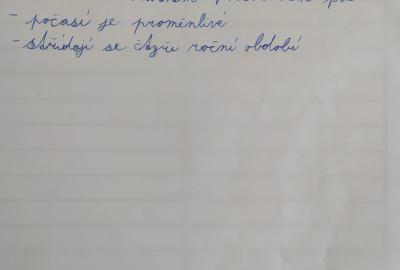 - počasí je proměnlivé
- střídají se čtyři roční období